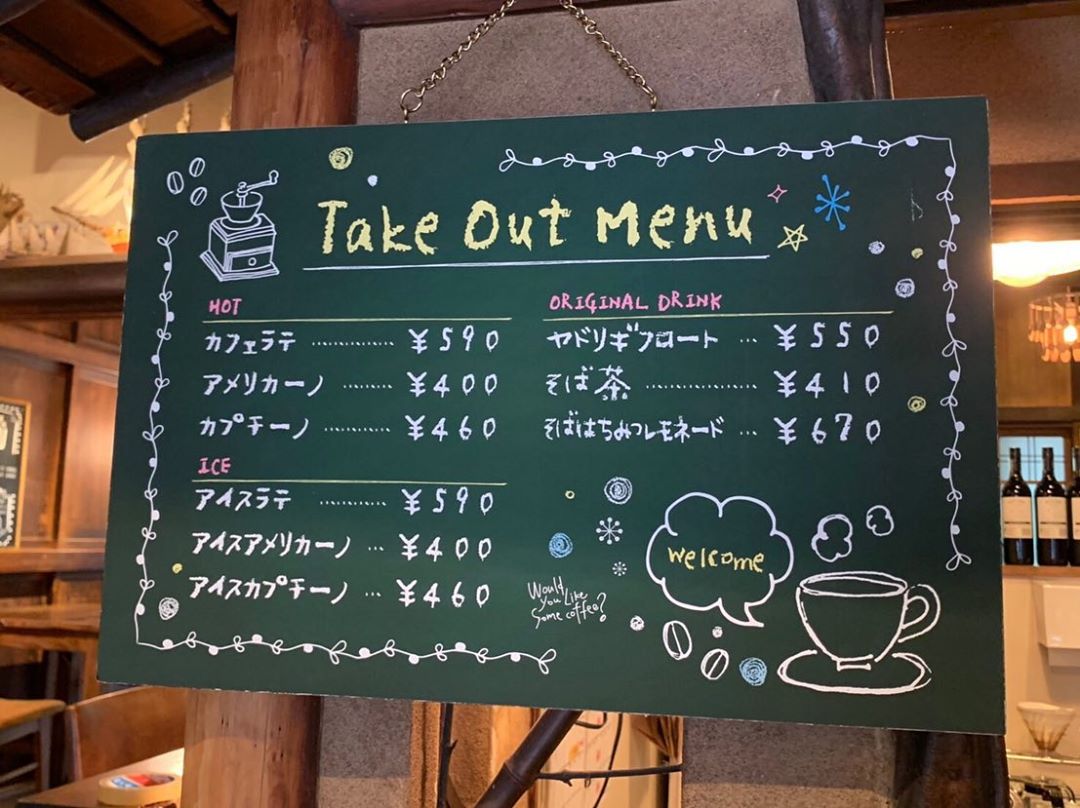 Take Out Menu
HOT
カフェラテ ………… ¥590
アメリカーノ ……… ¥400
カプチーノ ………… ¥460
ICE
アイスラテ ………… ¥590
アイスアメリカーノ … ¥400
アイスカプチーノ … ¥460
ORIGINAL DRINK
ヤドリギフロート … ¥550
そば茶 …………… ¥410
そばはちみつレモネード … ¥670
welcome
Would
you Like
some coffee?